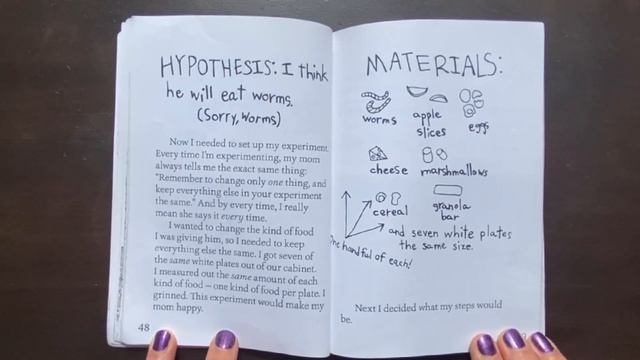 HYPOTHESIS: I think
he will eat worms.
(Sorry, Worms)
Now I needed to set up my experiment.
Every time I'm experimenting, my mom
always tells me the exact same thing:
"Remember to change only one thing, and
keep everything else in your experiment
the same." And by every time, I really
mean she says it every time.
I wanted to change the kind of food
I was giving him, so I needed to keep
everything else the same. I got seven of
the same white plates out of our cabinet.
I measured out the same amount of each
kind of food – one kind of food per plate. I
grinned. This experiment would make my
mom happy.
48
MATERIALS:
worms
apple
slices
eggs
cheese
marshmallows
cereal
granola
bar
and seven white plates
the same size.
One handful of each!
Next I decided what my steps would
be.